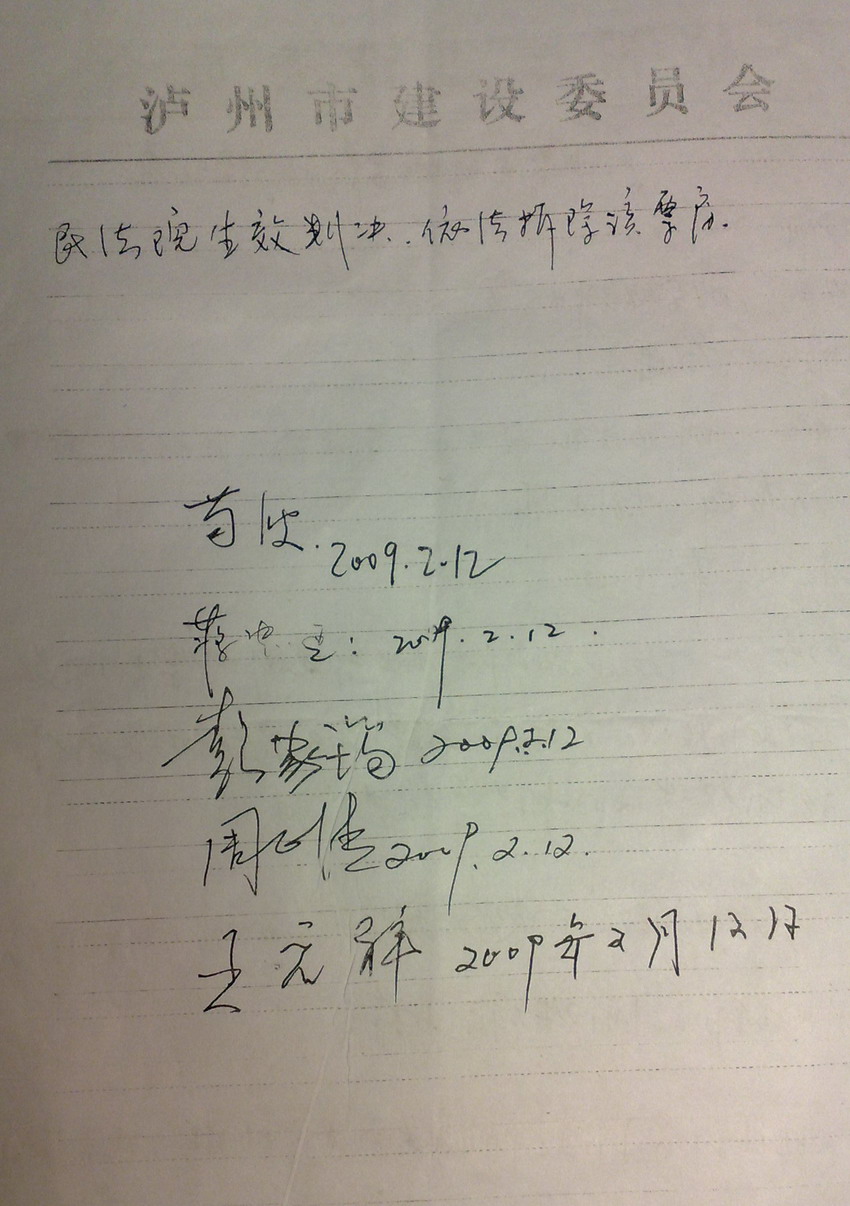 泸州市建设委员会
民法院生效判决，依法拆除该票房.
苟波.
2009.2.12
蒋中 : 2009.2.12.
彭 2009.2.12
周 2009.2.12.
王元祥 2009年2月12日